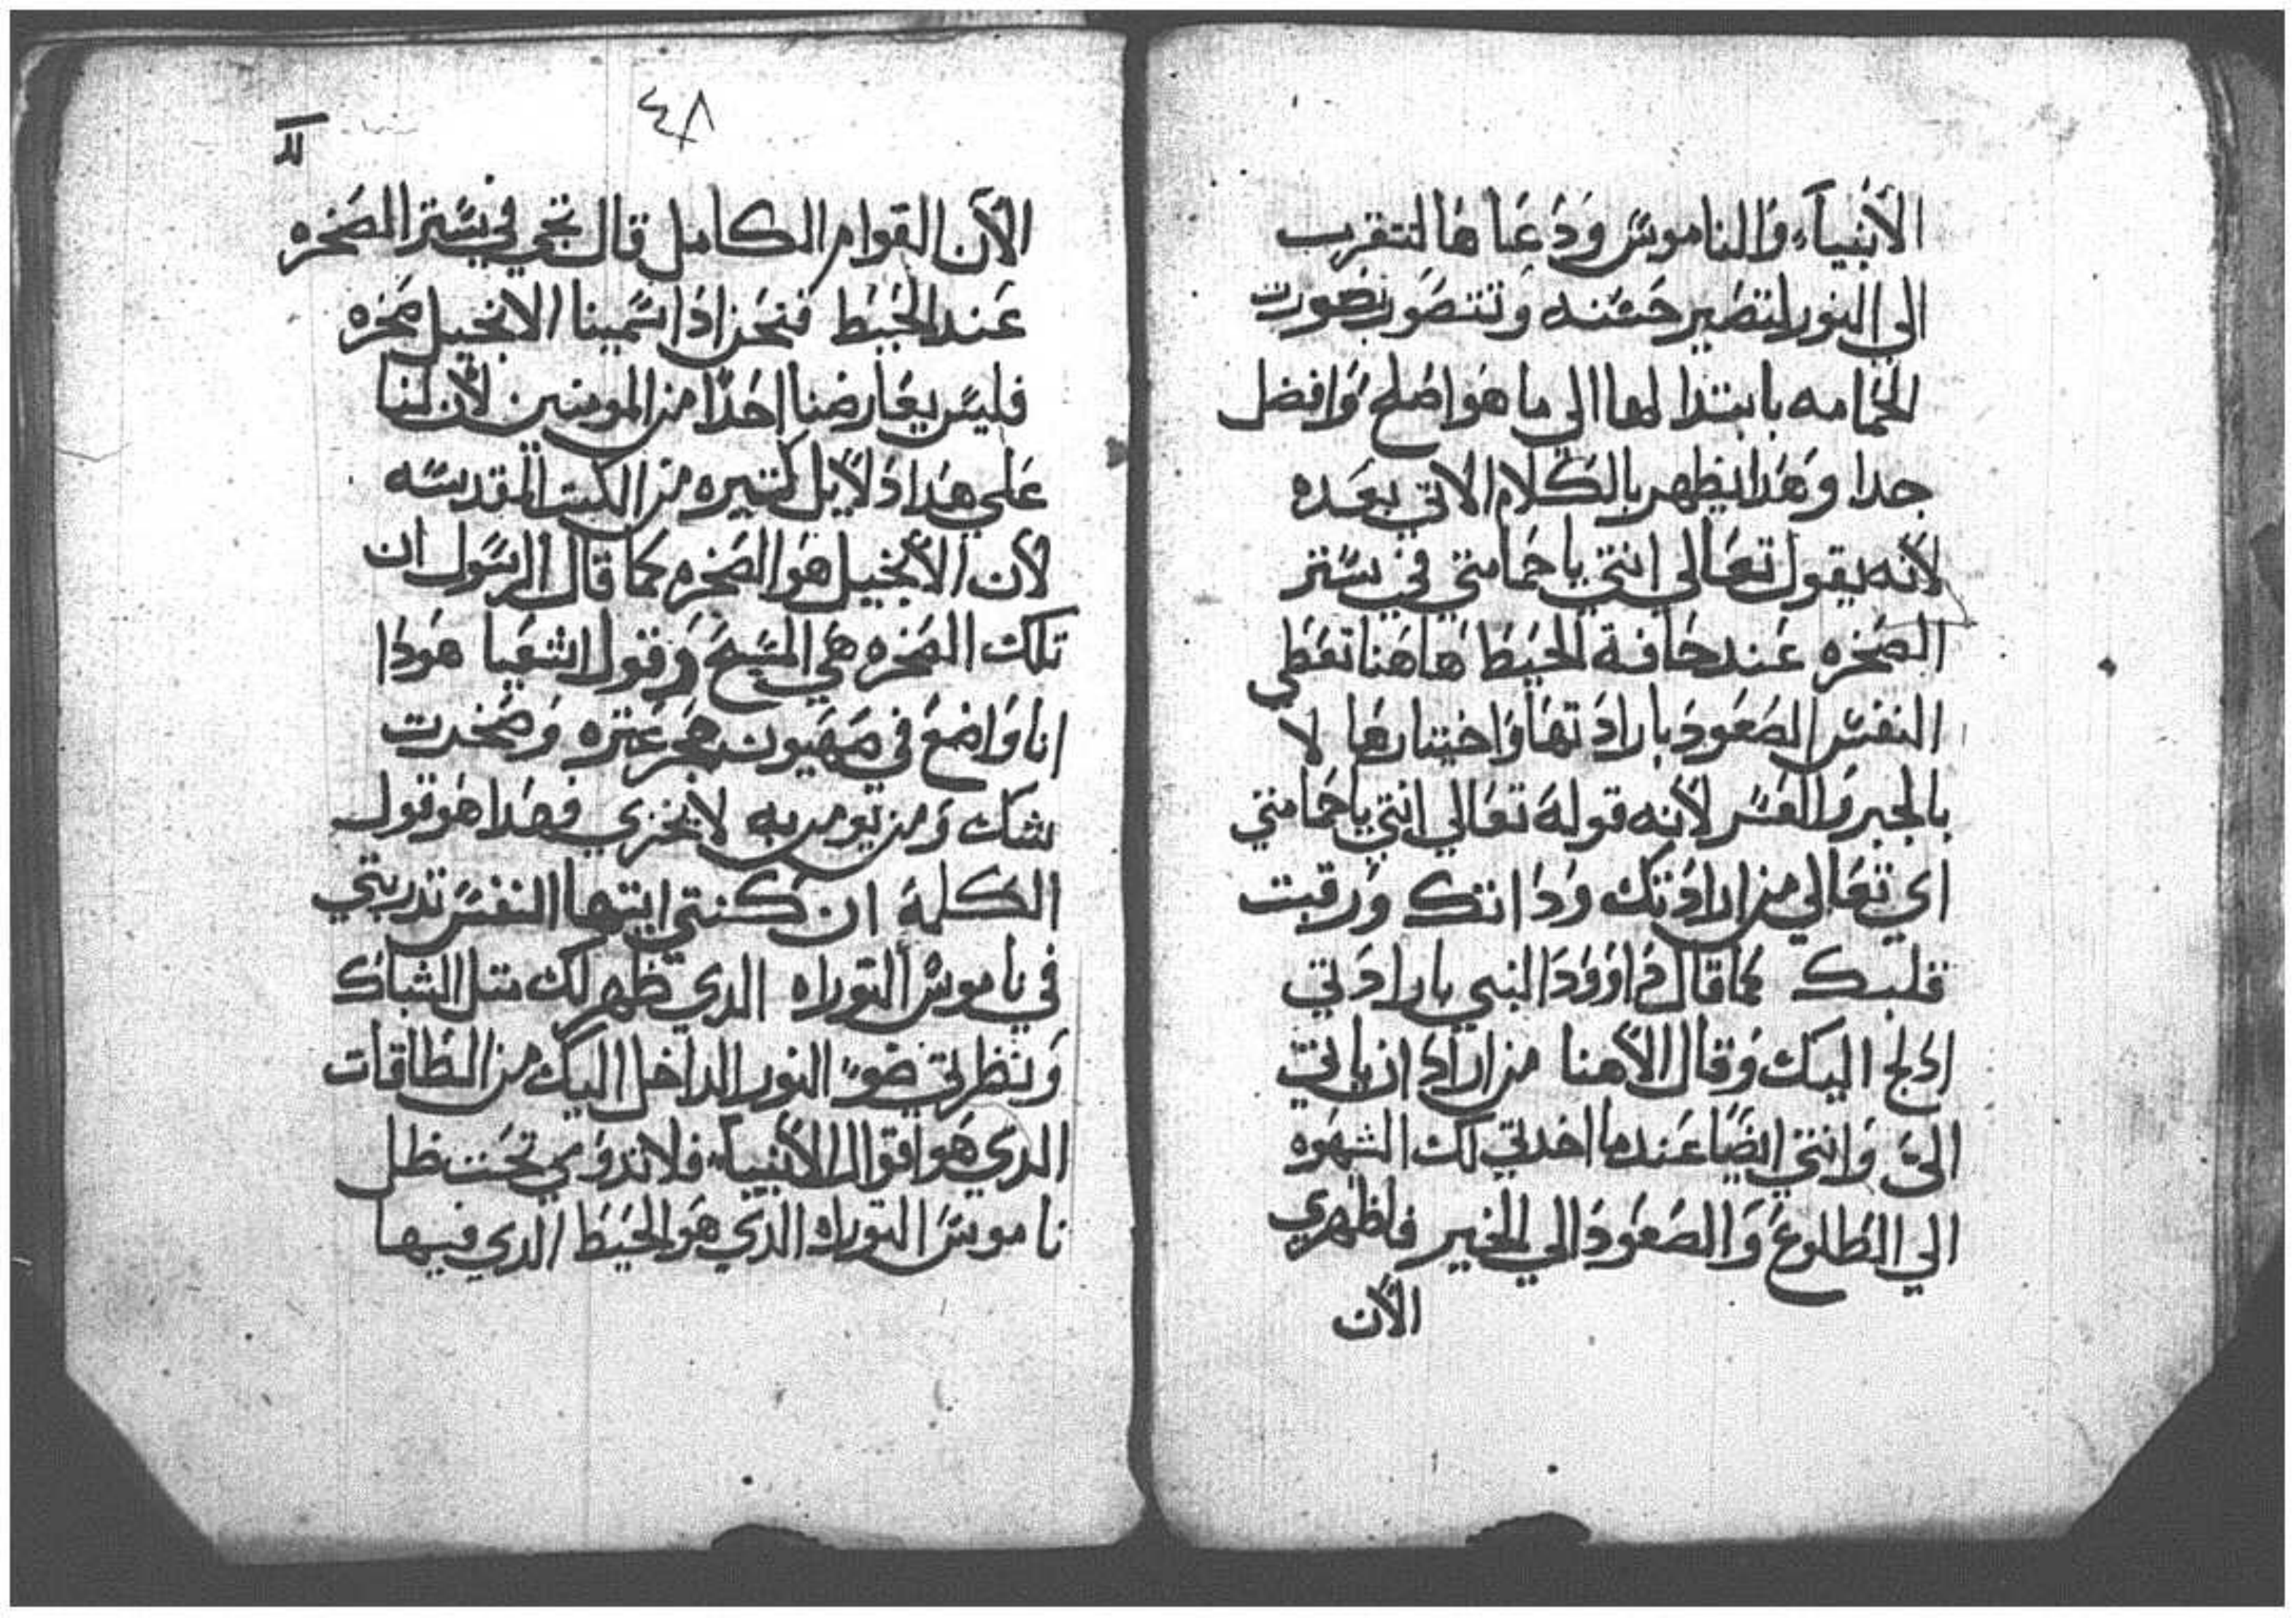 الأنبياء والناموس ودعاها لتقرب
الي النور لتصير حسنه وتتصور بصورت
الحمامه بابتدا لها الي ما هو اصلح وافضل
جدا وهدا يظهر بالكلام الاتي بعده
لأنه يقول تعالي انتي ياحمامتي في ستر
الصخره عند حافة الحيط هاهنا تعطي
النفس الصعود بارادتها واختيارها لا
بالجبر والقسر لأنه قوله تعالي انتي ياحمامتي
اي تعالي من ارادتك وداتك ورقبت
قلبك كما قال داوود النبي بارادتي
ادبح اليك وقال الأهنا من اراد ان ياتي
الي وانتي ايضا عندما اخدتي لك الشهوه
الي الطلوع والصعود الي الخير فاظهري
الأن
٤٨
الأن القوام الكامل قال تجي في ستر الصخره
عند الحيط فنحن ادا سمينا الانجيل صخره
فليس يعارضنا احدا من المومنين لأن لنا
علي هدا دلايل كتيره من الكتب المقدسه
لأن الأنجيل هو الصخره كما قال الرسول ان
تلك الصخره هي المسيح وقول اشعيا هودا
انا واضع في صهيون حجر عتره وصخرت
شك ومن يومن به لا يخزي فهدا هو قول
الكلمة ان كنتي ايتها النفس تدربتي
في ناموس التوراه الدي ظهر لك متل الشباك
ونظرتي ضوء النور الداخل اليك من الطاقات
الدي هو اقوال الأنبياء فلا تدومي تحت ظل
ناموس التوراه الدي هو الحيط الدي فيها